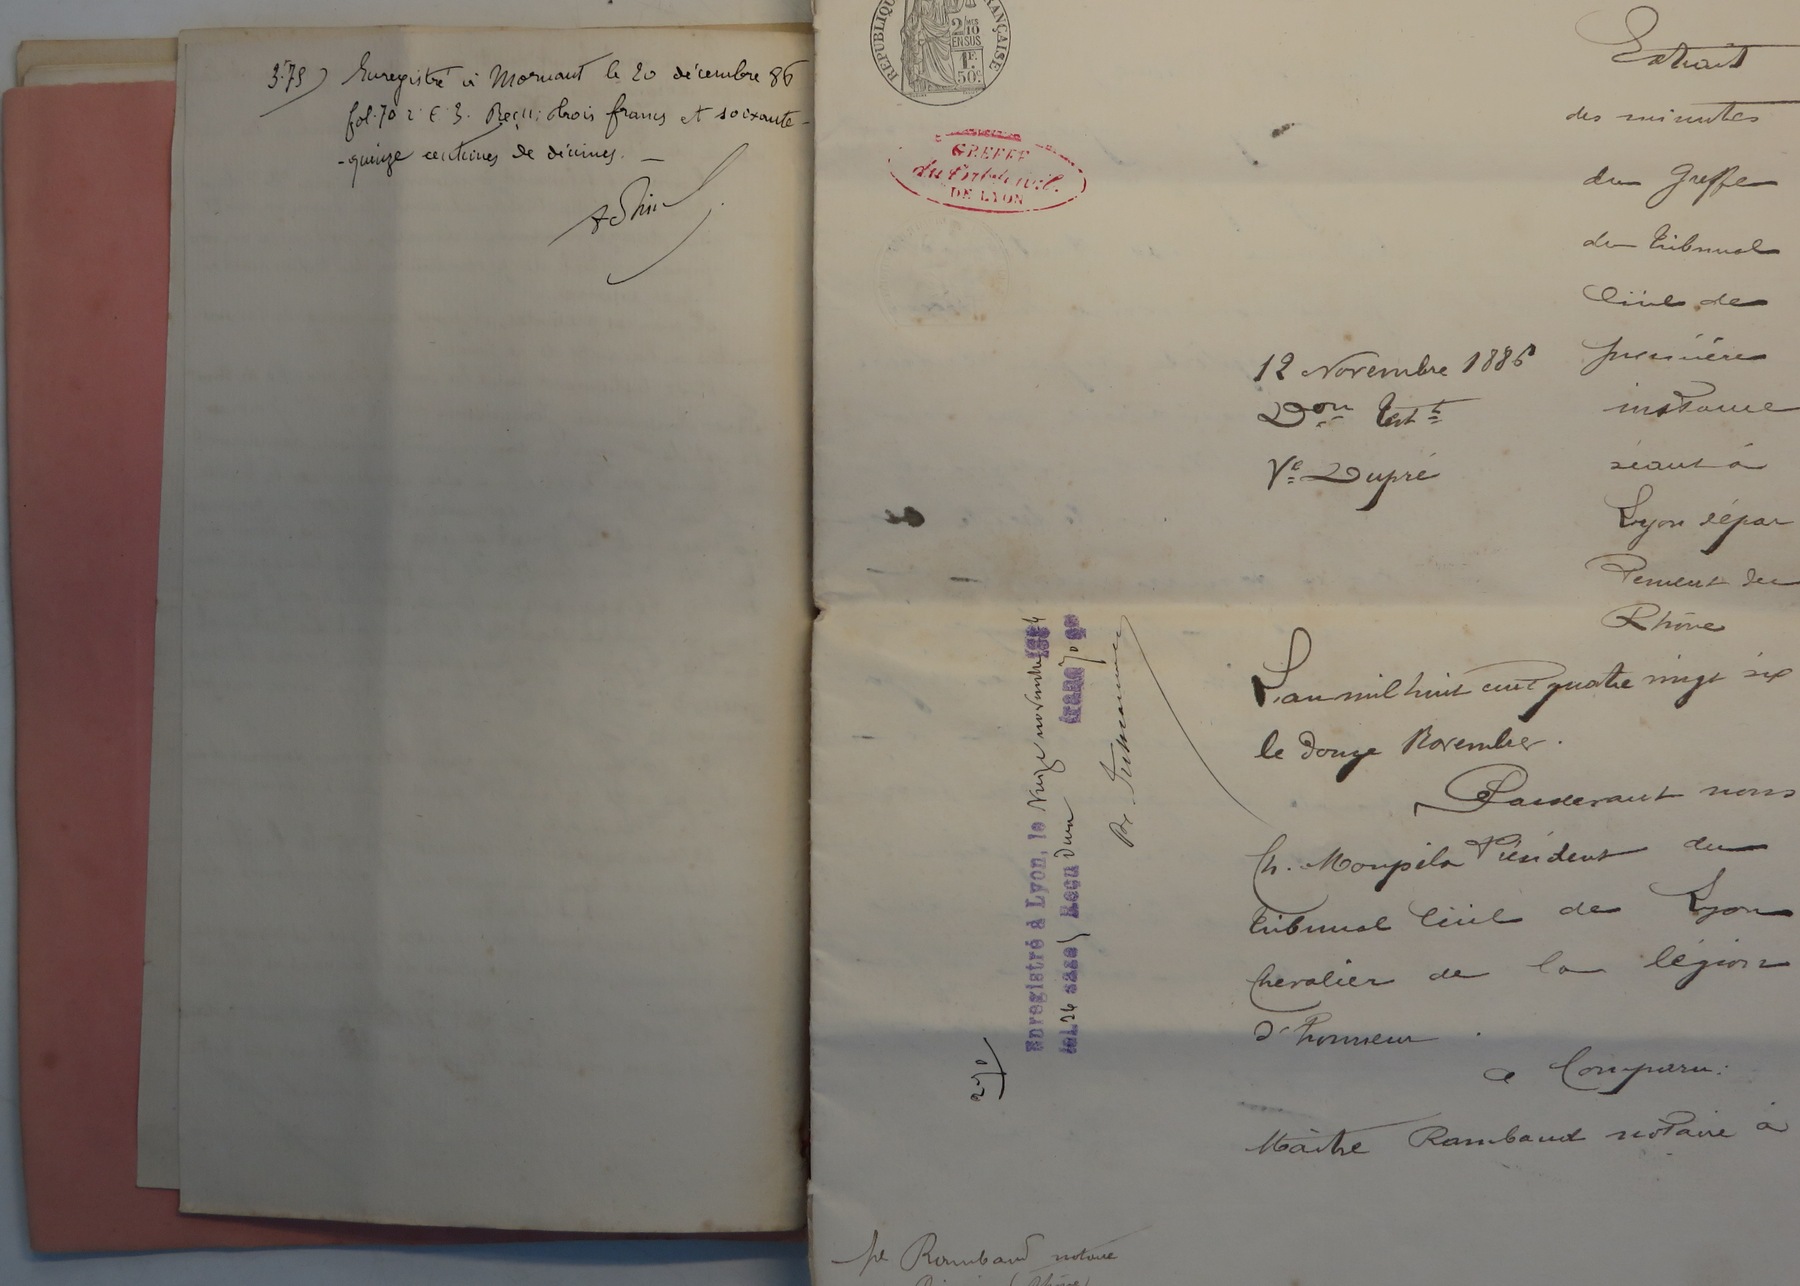 3.75) Enregistré à Mornant le 20 décembre 86
fol. 70 r° C 3. Reçu: trois francs et soixante-
-quinze centimes de décimes. —
RÉPUBLIQUE FRANÇAISE
2/10
EN SUS
1F.
50c
GREFFE
du trib. civil.
DE LYON
Extrait
des minutes
du Greffe
du tribunal
Civil de
première
instance
séant à
Lyon dépar
tement du
Rhône
12 Novembre 1886
Don Testt
Ve Dupré
L'an mil huit cent quatre vingt six
le douze Novembre.
Pardevant nous
Ch. Président du
tribunal Civil de Lyon
Chevalier de la légion
d'honneur
a Comparu:
Maître Rambaud notaire à
Enregistré à Lyon, le novembre
fol. 26 case Reçu francs
Rambaud notaire
(Rhône)